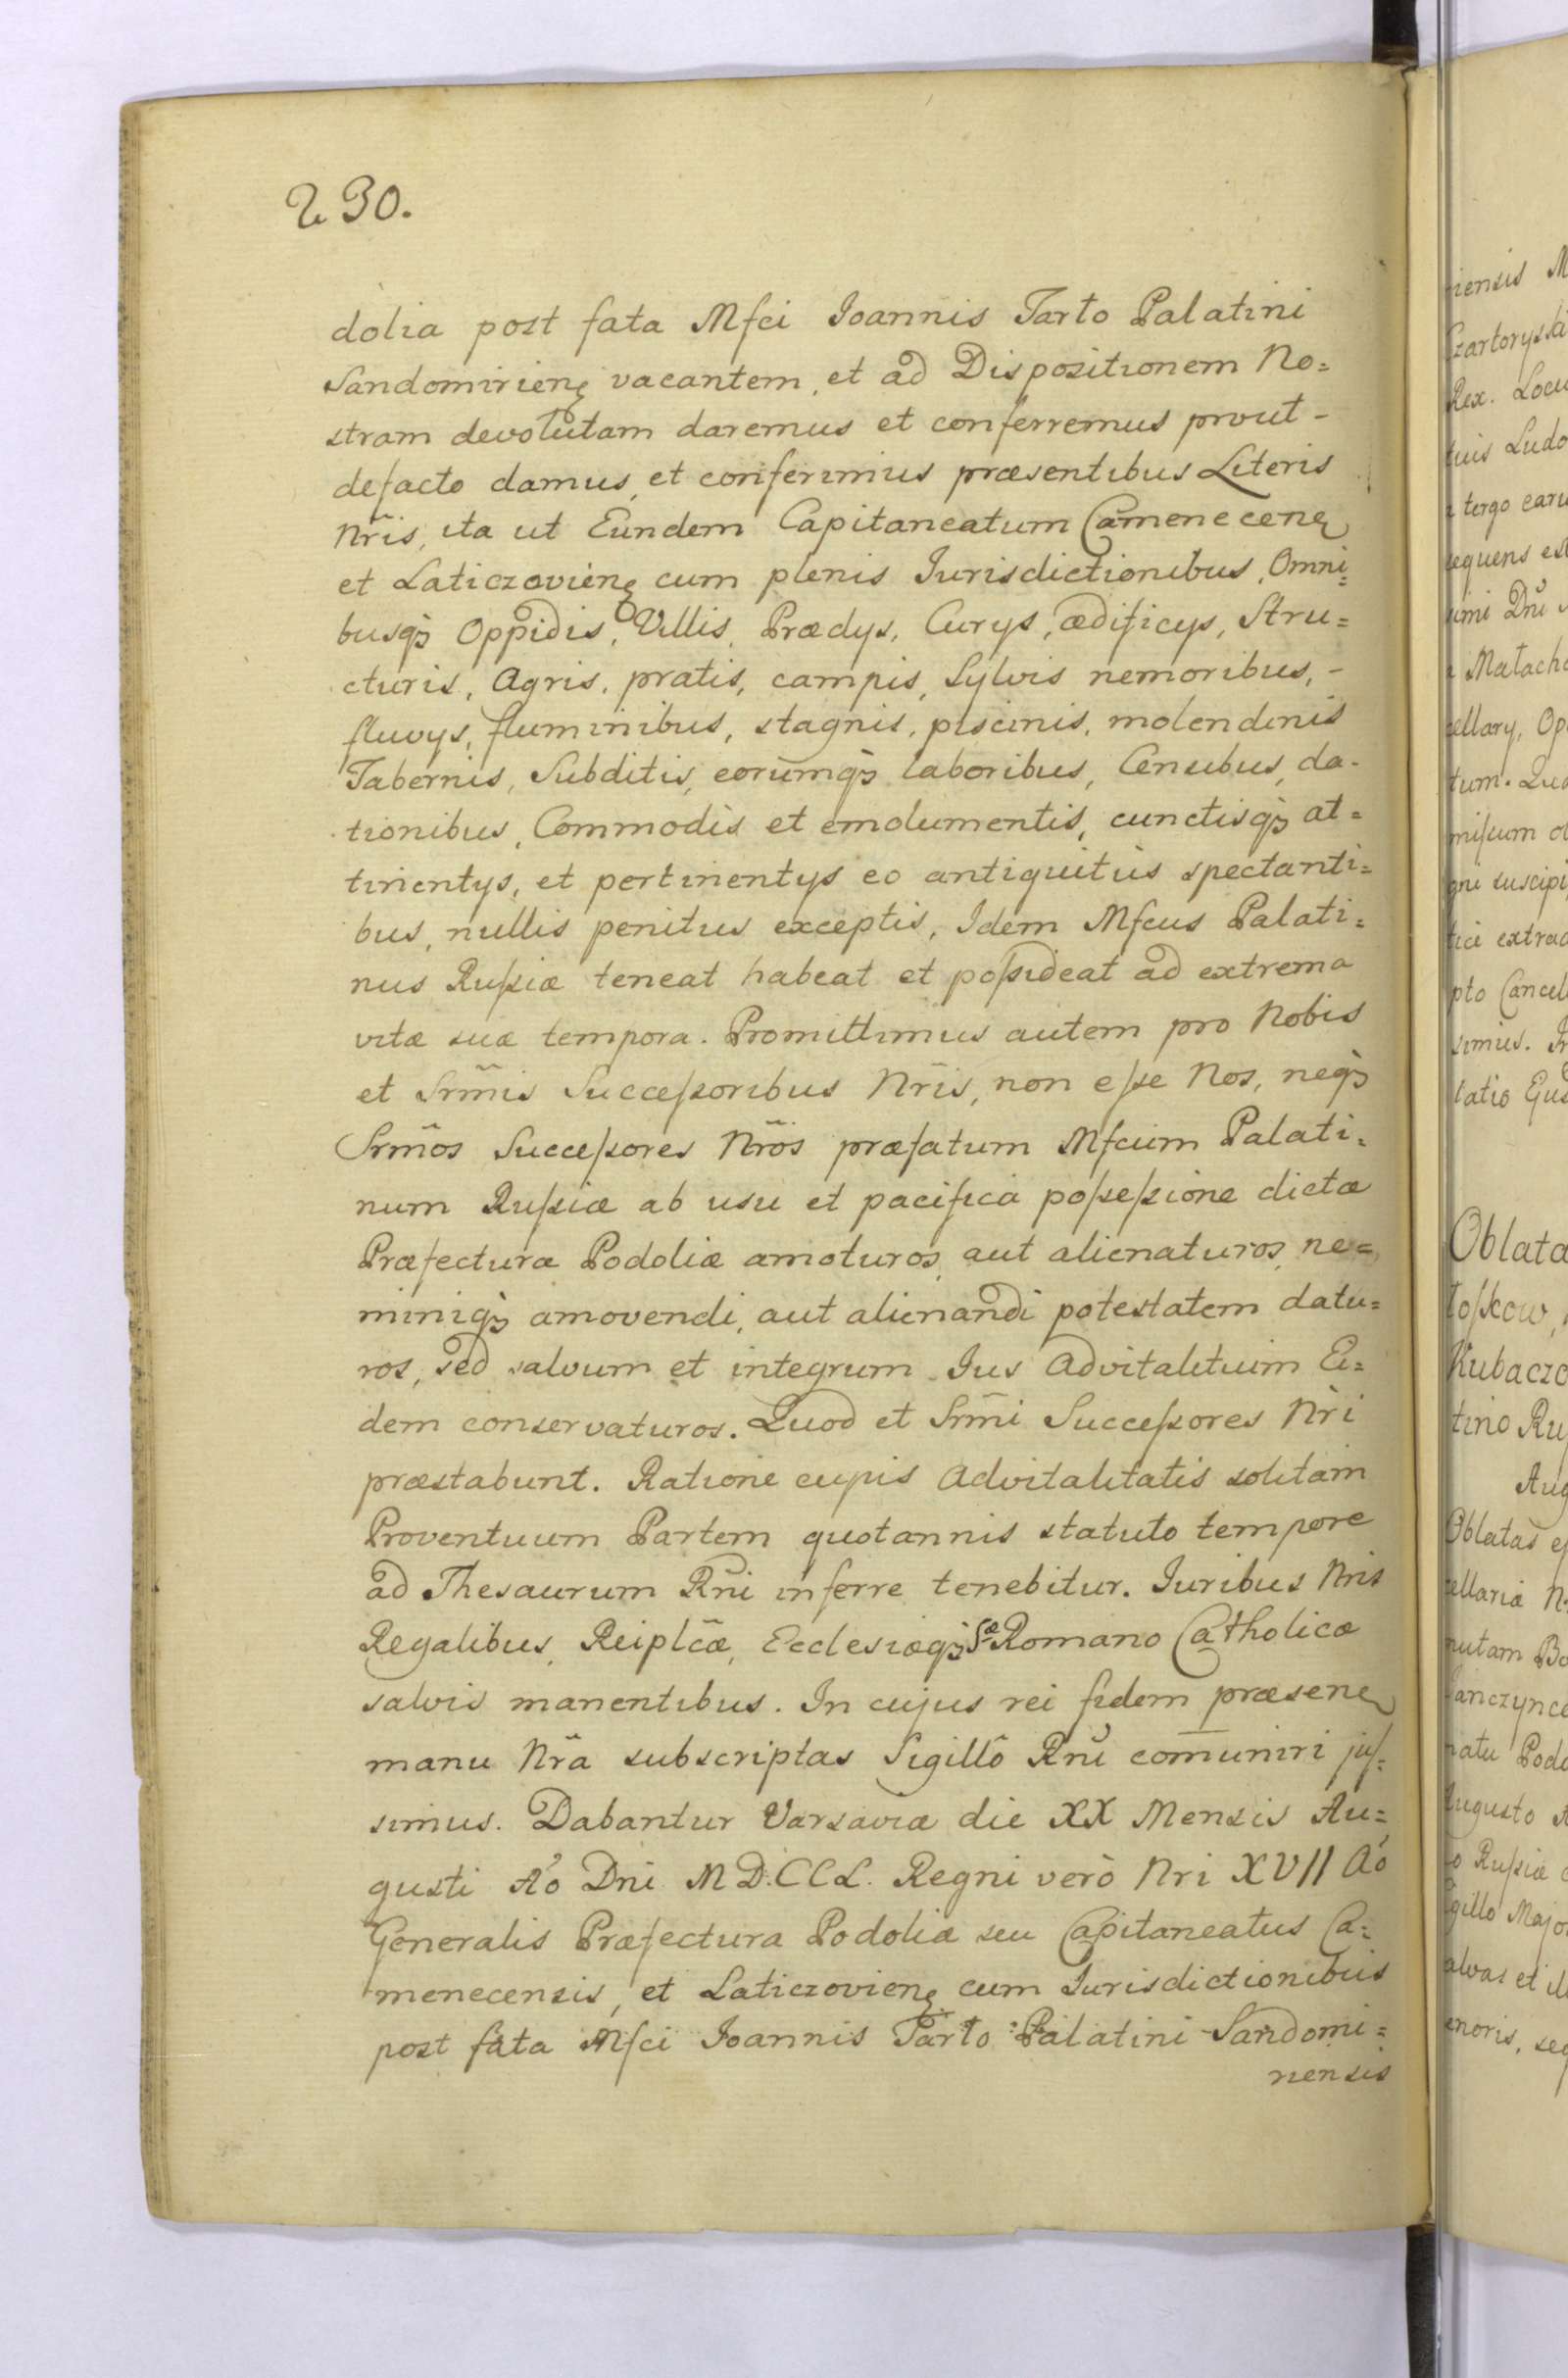 230.
dolia post fata Mfci Joannis Tarło Palatini
Sandomirienȩ vacantem, et ad Dispositionem No=
stram devolutam daremus et conferremus prout-
defacto damus, et conferimus præsentibus Literis
Nr̃is, ita ut Eundem Capitaneatum Camenecenȩ
et Laticzovienȩ cum plenis Jurisdictionibus, Omni=
busqꝫ Oppidis, Villis, Prædys, Curys, ædificys, Stru=
cturis, Agris, pratis, campis, Sylvis nemoribus,-
fluvys, fluminibus, stagnis, piscinis, molendinis
Tabernis, Subditis, eorumqꝫ laboribus, Censibus, da-
tionibus, Commodis et emolumentis, cunctisqꝫ at=
tinentys, et pertinentys eo antiquitus spectanti=
bus, nullis penitus exceptis, Idem Mfcus Palati=
nus Rußiæ teneat habeat et poßideat ad extrema
vitæ suæ tempora. Promittimus autem pro Nobis
et Srm̃is Succeßoribus Nr̃is, non eße Nos, neqꝫ
Srm̃os Succeßores Nr̃os præfatum Mfcum Palati=
num Rußiæ ab usu et pacifica poßeßione dictæ
Præfecturæ Podoliæ amoturos, aut alienaturos, ne=
miniqꝫ amovendi, aut alienandi potestatem datu=
ros, sed salvum et integrum Jus Advitalitium Ei=
dem conservaturos. Quod et Srm̃i Succeßores Nr̃i
præstabunt. Ratione cujus Advitalitatis solitam
Proventuum Partem quotannis statuto tempore
ad Thesaurum Rñi inferre tenebitur. Juribus Nris
Regalibus, Reiplcæ, Ecclesiæqꝫ Sæ Romano Catholicæ
salvis manentibus. In cujus rei fidem præsenȩ
manu Nr̃a subscriptas Sigillo Rñi com̃uniri juſ=
simus. Dabantur Varsaviæ die XX Mensis Au=
gusti Aó Dni M D.CCL. Regni verò Nri XVII Aó
Generalis Præfectura Podoliæ seu Capitaneatus Ca=
menecensis, et Laticzovienȩ cum Jurisdictionibus
post fata Mfci Joannis Tarło Palatini Sandomi=
riensis
riensis M
Czartoryski
Rex. Locu
tuis Ludo
a tergo earu
sequens est
Małacho
cellary, Op
tum. Quo
gni suscipi
extrac
pto Cancel
simus. Jn
latio Ejus
Oblata
Kubaczo
tino Ru
Aug
Oblatas
cellaria N
Podo
Augusto
o Rußiæ
gillo Major
alvas et il
enoris, seq